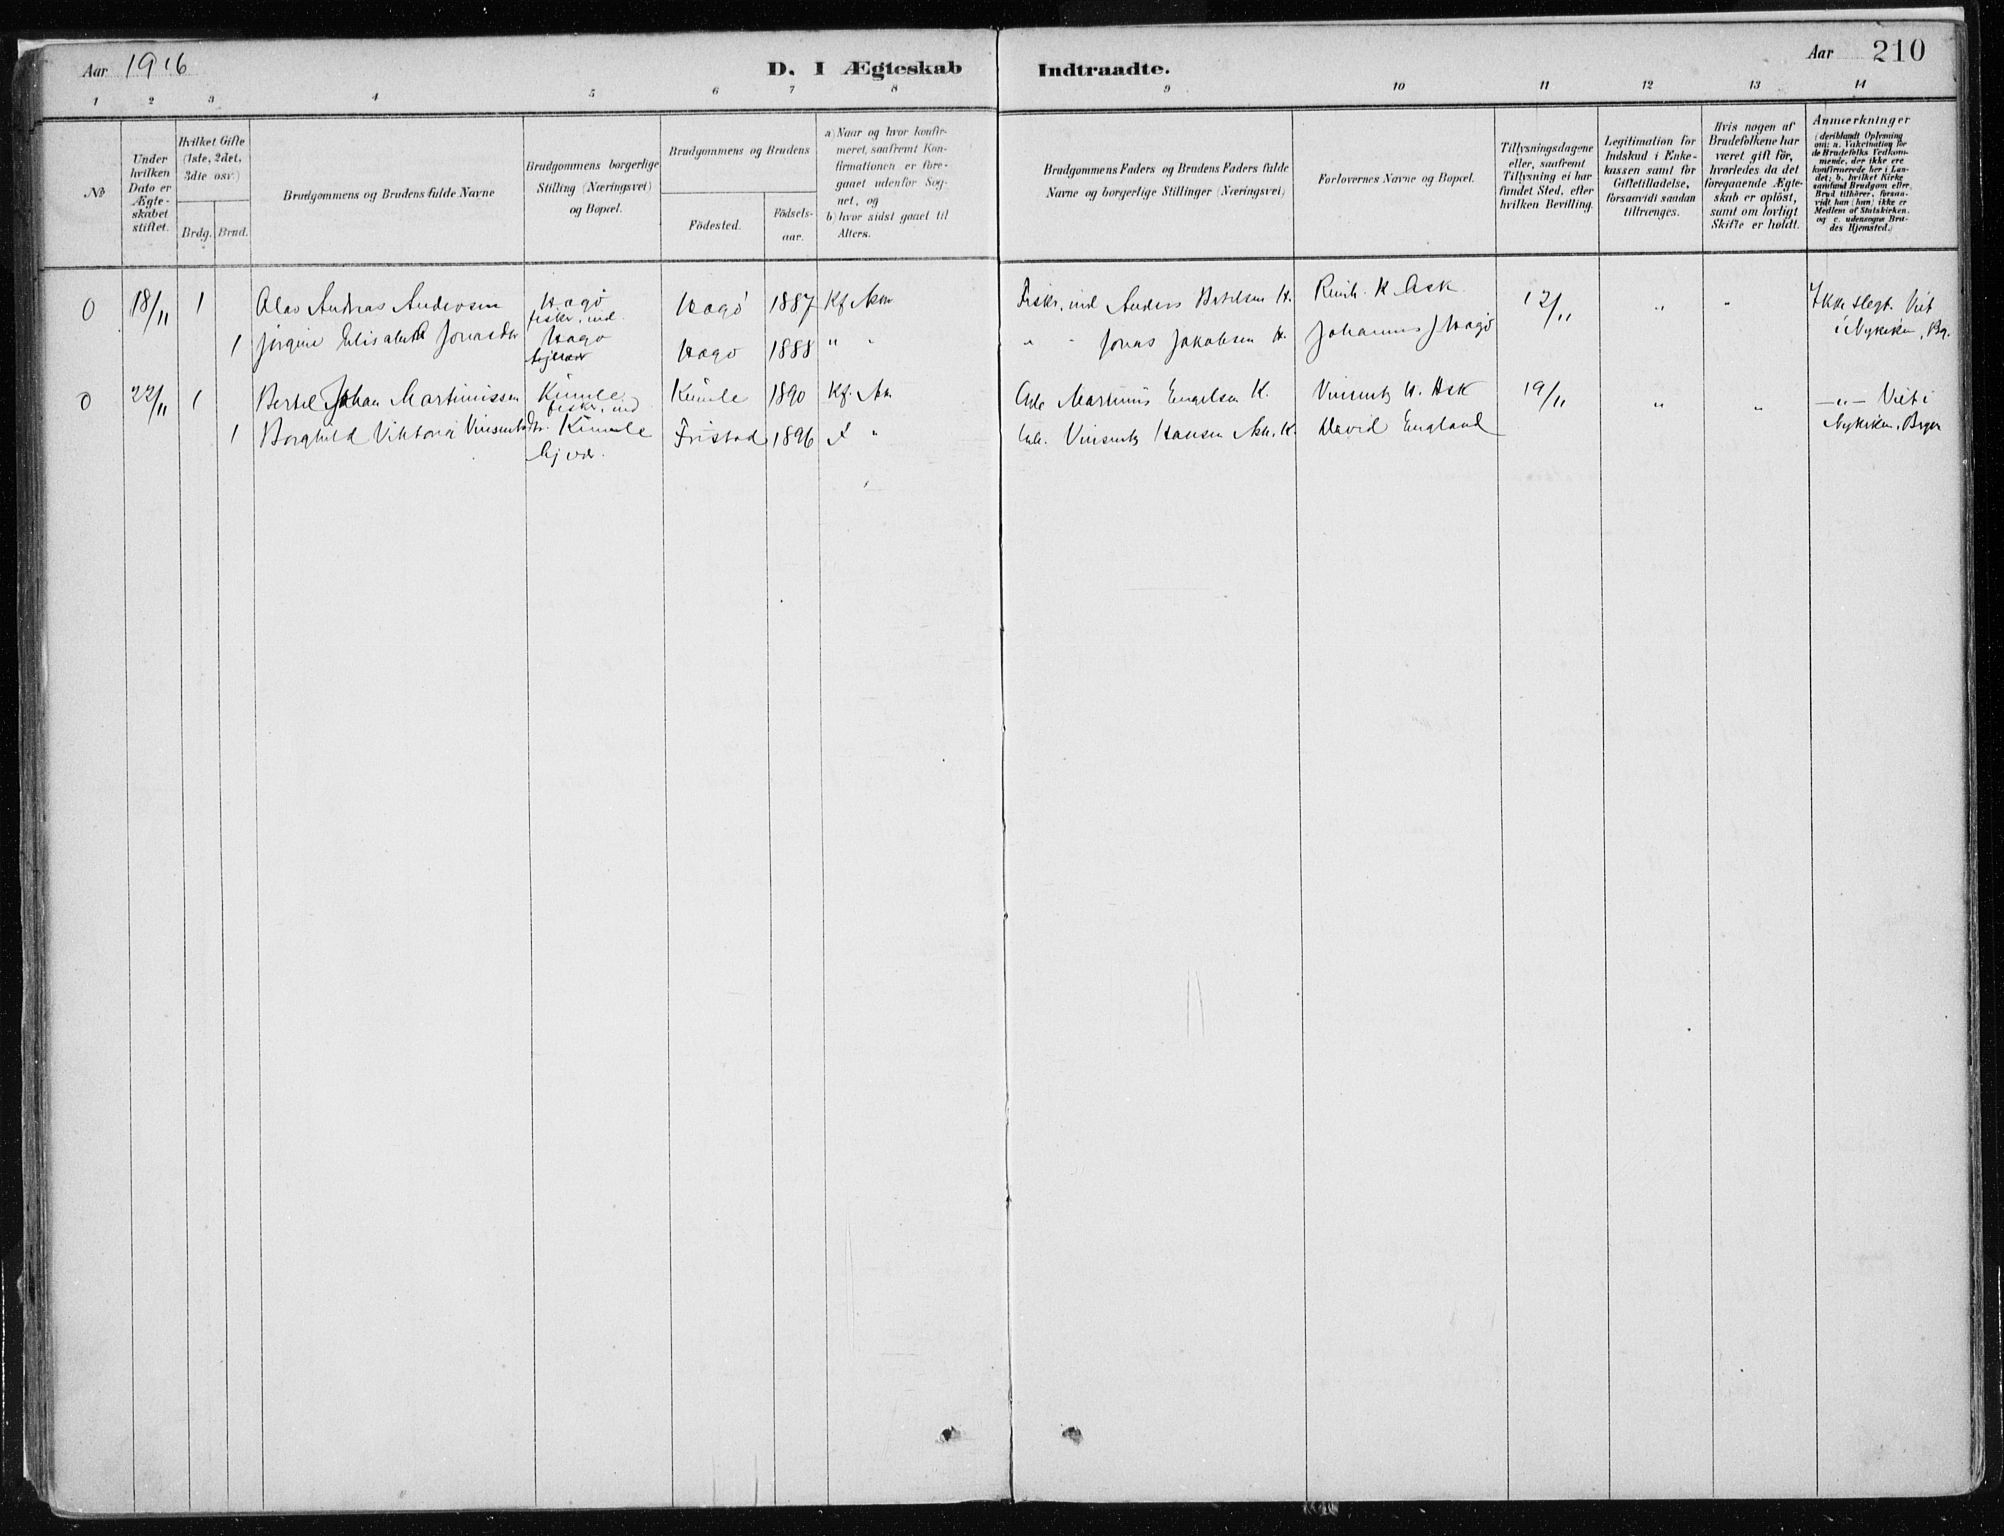 Aar 1916
D. I Ægteskab Indtraadte.
Aar 210
1 2 3 4 5 6 7 8 9 10 11 12 13 14
No
Under hvilken Dato er Ægte-skabet stiftet.
Hvilket Gifte (1ste, 2det, 3die osv.)
Brdg. Brud.
Brudgommens og Brudens fulde Navne
Brudgommens borgerlige Stilling (Næringsvei) og Bopæl.
Brudgommens og Brudens
Födested.
Födsels-aar.
a) Naar og hvor konfir-meret, saafremt Kon-firmationen er fore-gaaet udenfor Sog-net, og
b) hvor sidst gaaet til Alters.
Brudgommens Faders og Brudens Faders fulde Navne og borgerlige Stillinger (Næringsvei)
Forlovernes Navne og Bopæl.
Tillysningsdagene eller, saafremt Tillysning ei har fundet Sted, efter hvilken Bevilling.
Legitimation for Indskud i Enke-kassen samt for Giftetilladelse, forsaavidt saadan tiltrænges.
Hvis nogen af Brudefolkene har været gift för, hvorledes da det foregaaende Ægte-skab er oplöst, samt om lovligt Skifte er holdt.
Anmærkninger
(deriblandt Oplysning om: a. Vakcination for de Brudefolks Vedkom-mende, der ikke ere konfirmerede her i Lan-det; b. hvilket Kirke samfund Brudgom eller Brud tilhörer, forsaa-vidt han (hun) ikke er Medlem af Statskirken, og c. udensogns Bru-des Hjemsted.)
0 18/11 1 Olav Andreas Andersen Hagø Hagø 1887 Kf. Ask Fiskr, ind Anders Bertelsen H. K Ask 12/11 " " Ikke slegt. Viet
fiskr, ind.
1 Jørgine Elisabeth Jonasdtr Hagø Hagø 1888 " " " " Jonas Jakobsen H. Johannes J Hagø i Nykirken, Bg.
0 22/11 1 Bertel Johan Martinussen Kumle Kumle 1890 Kf. Ask Martinus Engelsen K. Vinsents H. Ask 19/11 " " —"— Viet i
fiskr, ind
1 Borghild Viktoria Vinsentsdtr. Kumle Fristad 1896 " Vinsents Hansen Ask. K. David England Nykirken, Bergen